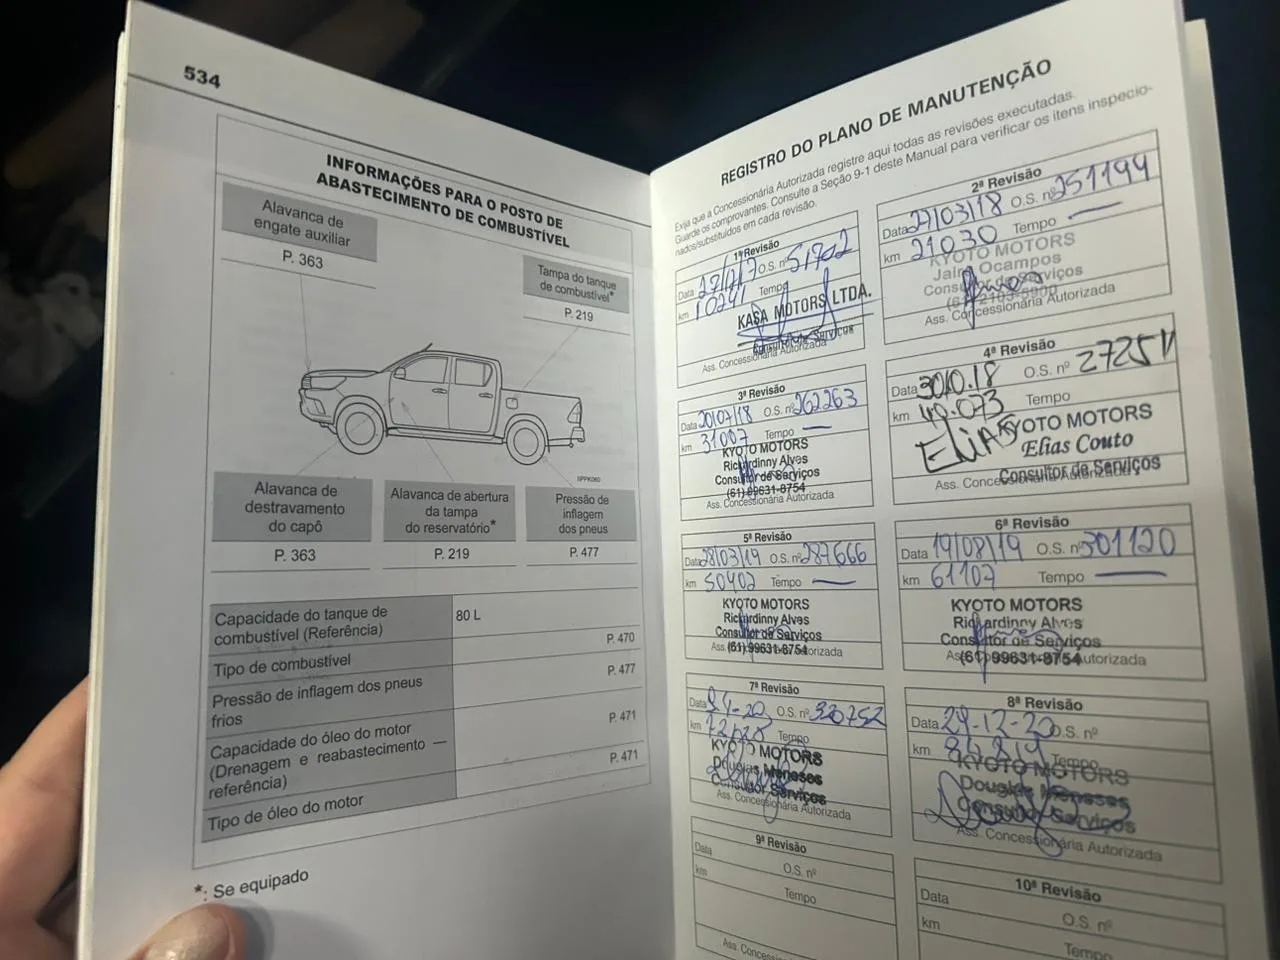 534
INFORMAÇÕES PARA O POSTO DE
ABASTECIMENTO DE COMBUSTÍVEL
Alavanca de
engate auxiliar
P. 363
Tampa do tanque
de combustível*
P. 219
Alavanca de
destravamento
do capô
P. 363
Alavanca de abertura
da tampa
do reservatório*
P. 219
Pressão de
inflagem
dos pneus
P. 477
Capacidade do tanque de
combustível (Referência)
80 L
Tipo de combustível
P. 470
Pressão de inflagem dos pneus
frios
P. 477
Capacidade do óleo do motor
(Drenagem e reabastecimento —
referência)
P. 471
Tipo de óleo do motor
P. 471
*: Se equipado
REGISTRO DO PLANO DE MANUTENÇÃO
Exija que a Concessionária Autorizada registre aqui todas as revisões executadas.
Guarde os comprovantes. Consulte a Seção 9-1 deste Manual para verificar os itens inspecio-
nados/substituídos em cada revisão.
1ª Revisão
Data O.S. nº 51702
km Tempo
KASA MOTORS LTDA.
Consultor de Serviços
Ass. Concessionária Autorizada
2ª Revisão
Data 27/03/18 O.S. nº 251194
km 21030 Tempo —
KYOTO MOTORS
Jairo Ocampos
Consultor de Serviços
Ass. Concessionária Autorizada
3ª Revisão
Data 20/07/18 O.S. nº 262263
km 31007 Tempo —
KYOTO MOTORS
Rickardinny Alves
Consultor de Serviços
(61) 99631-8754
Ass. Concessionária Autorizada
4ª Revisão
Data 30.10.18 O.S. nº
km 40.073 Tempo
Elias KYOTO MOTORS
Elias Couto
Consultor de Serviços
Ass. Concessionária Autorizada
5ª Revisão
Data 28/03/19 O.S. nº 287666
km 50402 Tempo —
KYOTO MOTORS
Rickardinny Alves
Consultor de Serviços
(61) 99631-8754
Ass. Concessionária Autorizada
6ª Revisão
Data 19/08/19 O.S. nº 301120
km 61107 Tempo —
KYOTO MOTORS
Rickardinny Alves
Consultor de Serviços
(61) 99631-8754
Ass. Concessionária Autorizada
7ª Revisão
Data O.S. nº 320752
km Tempo
KYOTO MOTORS
Douglas Meneses
Consultor Serviços
Ass. Concessionária Autorizada
8ª Revisão
Data 29-12-20 O.S. nº
km 84819 Tempo
KYOTO MOTORS
Douglas Meneses
Consultor Serviços
Ass. Concessionária Autorizada
9ª Revisão
Data O.S. nº
km Tempo
10ª Revisão
Data O.S. nº
km Tempo